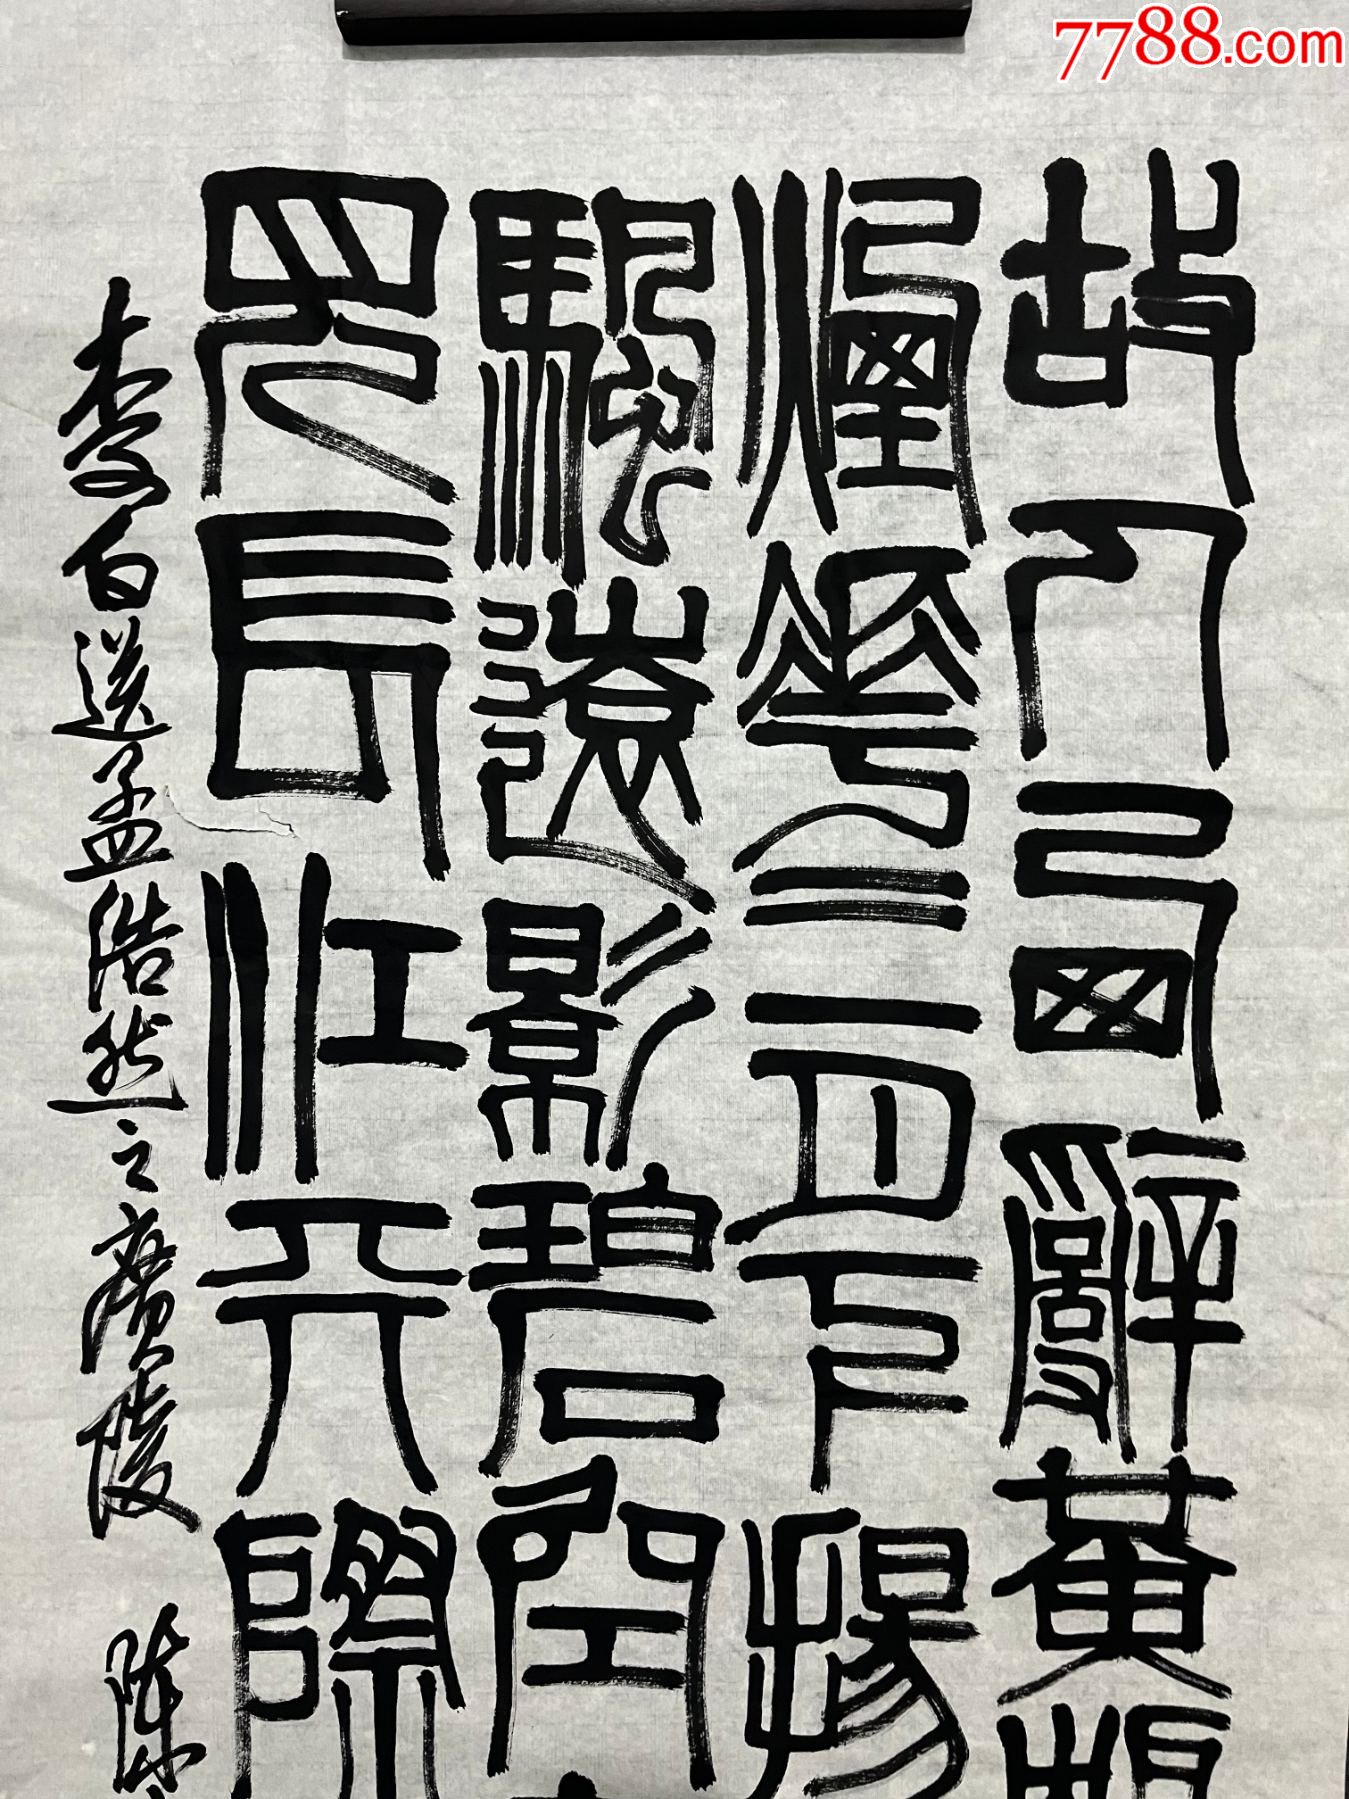 7788.com
故人西辭黃
煙華三月下揚
颿遠影碧空
見長江天際
李白送孟浩然之廣陵 陳